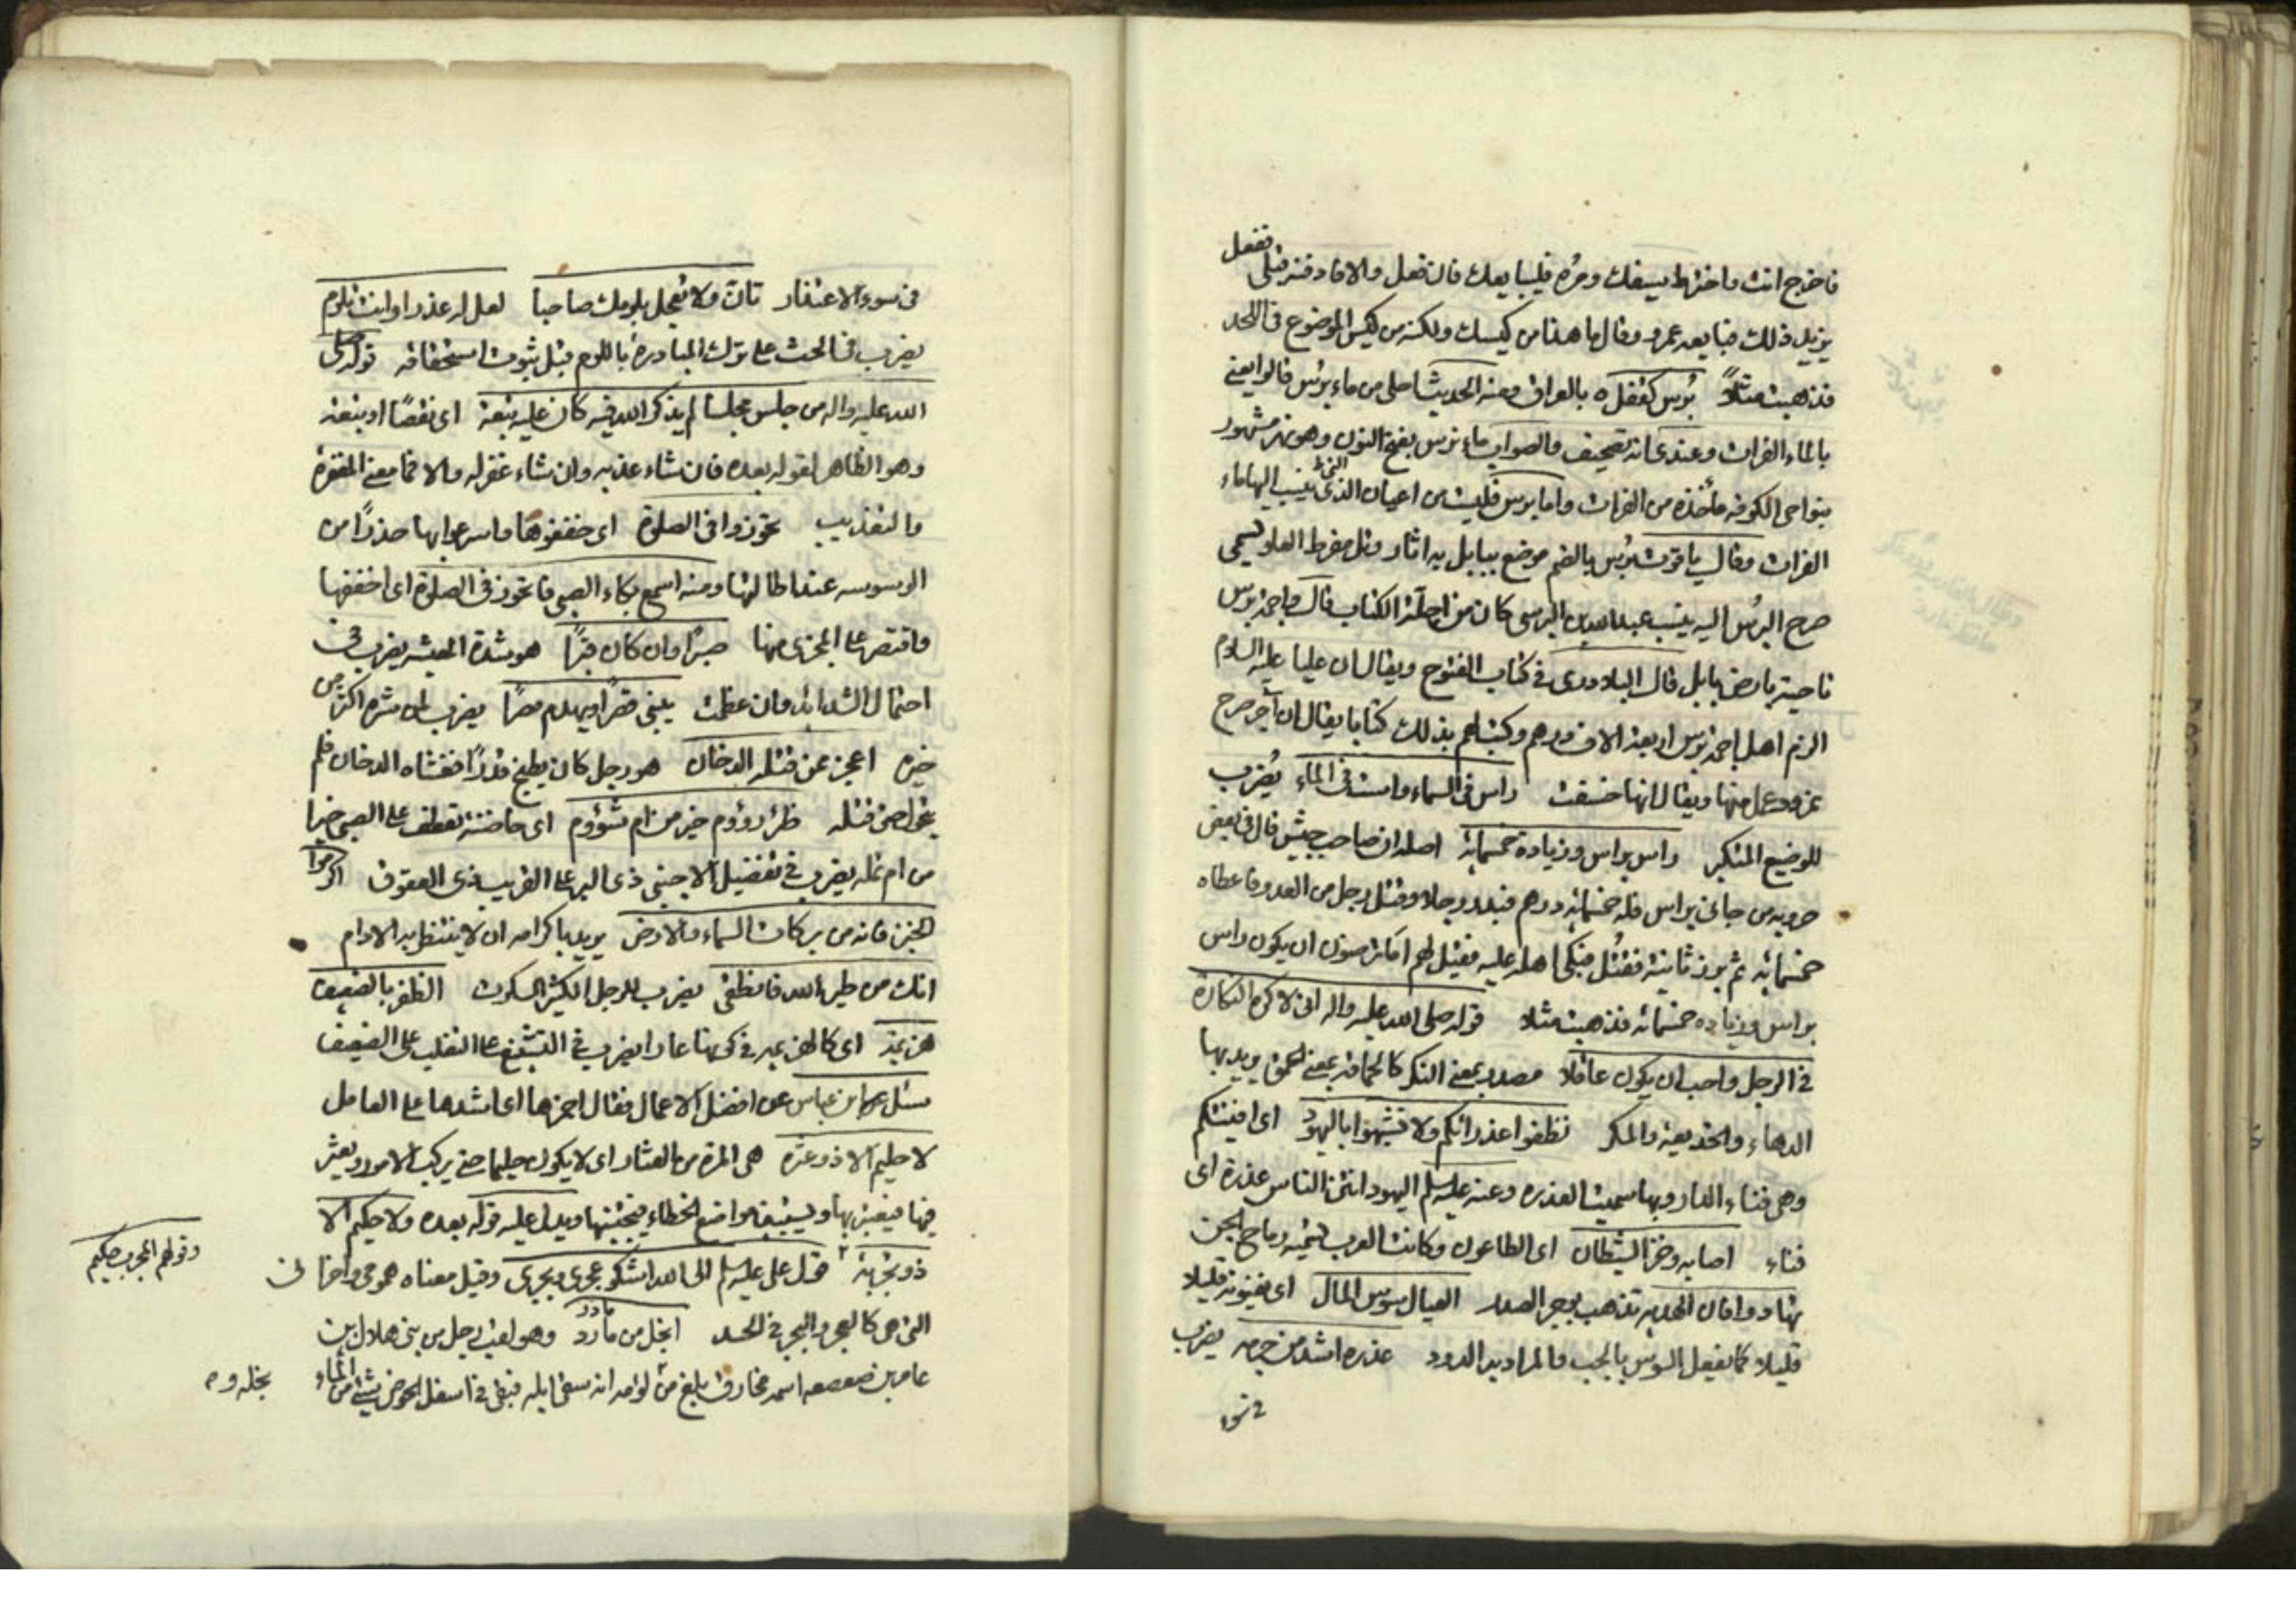 فاخرج انت واخترط بسيفك ومره فليبايعك فان فعل والا فادفنه قبلى ففعل
يزيد ذلك فبايعه عمرو وقال ما هذا من كيسك ولكنه من كيس الموضوع فى اللحد
فذهبت مثلاً بُرس كقفل ه بالعراق ومنه الحديث احلى من ماء برس قالوا يعنى
بالماء الفرات وعندى انه تصحيف والصواب ماء نرس بفتح النون وهو نهر مشهور
بنواحى الكوفه مأخذه من الفرات واما برس فليست من اعيان التى ينسب اليها ماء
الفرات وقال ياقوت برس بالضم موضع ببابل به اثار وتل مفرط العلو يسمى
صرح البرس اليه ينسب عبدالله بن البرسى كان من اجلة الكتاب قال واجمة برس
ناحية بارض بابل قال البلاذرى فى كتاب الفتوح ويقال ان عليا عليه السلام
الزم اهل اجمة برس اربعة الاف درهم وكتب لهم بذلك كتابا يقال ان آجر صرح
نمرود عمل منها ويقال انها خسفت راس فى السماء واست فى الماء يُضرب
للوضيع المتكبر راس براس وزيادة خمسمائة اصله ان صاحب جيش قال فى بعض
حروبه من جاءنى براس فله خمسمائه درهم فبدر رجلا وقتل رجل من العدو فاعطاه
خمسمائه ثم برز ثانية فقُتل فبكى اهله عليه فقيل لهم اما ترضون ان يكون راس
براس وزياده خمسمائه فذهبت مثلا قوله صلى الله عليه واله انى لا كره النكارة
فى الرجل واحب ان يكون عاقلا مصدر بمعنى النكر كالحماقة بمعنى الحمق يريد بها
الدهاء والخديعة والمكر نظفوا عذراتكم ولا تشبهوا باليهود اى افنيتكم
وهى فناء الدار وبها سميت العذره وعنه عليه السلم اليهود انتن الناس عذرة اى
فناء اصابه وخز الشيطان اى الطاعون وكانت العرب تسميه رماح الجن
تهادوا فان الهديه تذهب بوحر الصدر العيال سوس المال اى يفنونه قليلا
قليلا كما يفعل السوس بالحب والمراد به الدود عذره اشد من جرمه يضرب
فى سوء
فى سوء الاعتذار تأنّ ولا تعجل بلومك صاحبا لعل له عذرا وانت تلوم
يضرب فى الحث على ترك المبادرة باللوم قبل ثبوت استحقاقه قوله صلى
الله عليه واله من جلس مجلسا لم يذكر الله فيه كان عليه تبعة اى نقصًا او تبعة
وهو الظاهر لقوله بعده فان شاء عذبه وان شاء غفر له والا فما معنى المغفرة
والتعذيب تجوزوا فى الصلوة اى خففوها واسرعوا بها حذرًا من
الوسوسه عند اطالتها ومنه اسمع بكاء الصبى فاتجوز فى الصلوة اى اخففها
واقتصر على المجزى منها صبرًا وان كان قترًا هو شدة المعيشه يضرب فى
احتمال الشدائد وان عظمت يبنى قصرًا ويهدم مصرًا يضرب لمن شره اكثر من
خيره اعجز عمن قتله الدخان هو رجل كان يطبخ قدرًا فغشاه الدخان فلم
يتحول حتى قتله ظئر رؤوم خير من ام سؤوم اى حاضنة تعطف على الصبى خير
من ام تمله يضرب فى تفضيل الاجنبى ذى البر على القريب ذى العقوق اكرموا
الخبز فانه من بركات السماء والارض يريد باكرامه ان لا ينتظر به الادام
انك من طير الله فانطقى يضرب للرجل الكثير السكوت الظفر بالضعيف
هزيمة اى كالهزيمه فى كونها عارا يضرب فى التشنيع على التغلب على الضعيف
سئل ابن عباس عن افضل الاعمال فقال احمزها اى اشدها على العامل
لا حليم الا ذو عثرة هى المرة من العثار اى لا يكون حليما حتى يركب الامور ويعثر
فيها فيعتبر بها ويستبين مواضع الخطاء فيجتنبها ويدل عليه قوله بعده ولا حكيم الا
ذو تجربة قول على عليه السلم الى الله اشكو عجرى وبجرى وقيل معناه همومى واحزانى
وقولهم المجرب حكيم
التى هى كالعجر والبجر فى الجسد ابخل من مادر وهو لقب رجل من بنى هلال بن
عامر بن صعصعه اسمه مخارق بلغ من لؤمه انه سقى ابله فبقى فى اسفل الحوض شئ من الماء